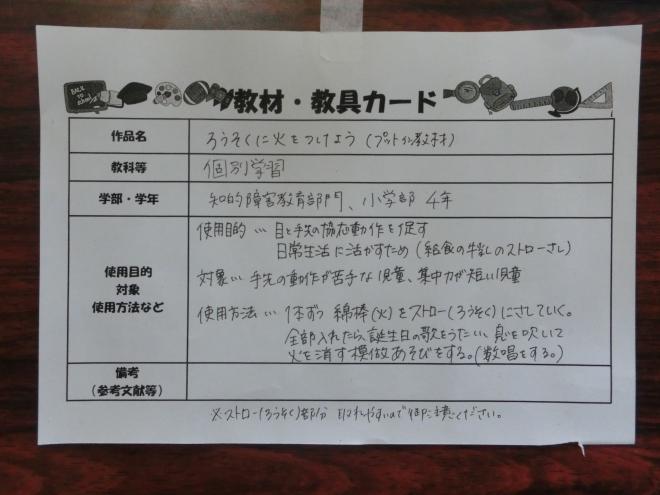 BACK TO School
教材・教具カード
作品名 ろうそくに火をつけよう(プットイン教材)
教科等 個別学習
学部・学年 知的障害教育部門、小学部 4年
使用目的 対象 使用方法など
使用目的 … 目と手先の協応動作を促す
日常生活に活かすため(給食の牛乳のストローさし)
対象 … 手先の動作が苦手な児童、集中力が短い児童
使用方法 … 1本ずつ 綿棒(火)をストロー(ろうそく)にさしていく。
全部入れたら、誕生日の歌をうたい、息を吹いて
火を消す模倣あそびをする。(数唱をする。)
備考
(参考文献等)
※ストロー(ろうそく)部分 取れやすいので御注意ください。